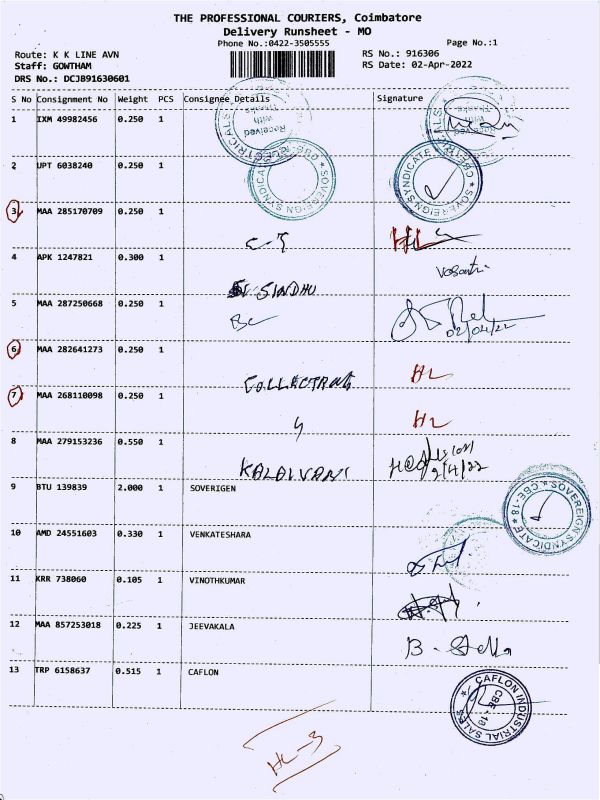 THE PROFESSIONAL COURIERS, Coimbatore
Delivery Runsheet - MO
Phone No.:0422-3505555
Page No.:1
Route: K K LINE AVN
RS No.: 916306
Staff: GOWTHAM
RS Date: 02-Apr-2022
DRS No.: DCJB91630601
S No Consignment No Weight PCS Consignee Details Signature
1 IXM 49982456 0.250 1
Received with Thanks
2 UPT 6038240 0.250 1
SOVEREIGN SYNDICATE
SOVEREIGN SYNDICATE
3 MAA 285170709 0.250 1
HL
4 APK 1247821 0.300 1
SINDHU
5 MAA 287250668 0.250 1
02/04/22
6 MAA 282641273 0.250 1
HL
7 MAA 268110098 0.250 1
HL
8 MAA 279153236 0.550 1
KALAIVANI
2/4/22
9 BTU 139839 2.000 1 SOVERIGEN
SOVEREIGN SYNDICATE CBE-18
10 AMD 24551603 0.330 1 VENKATESHARA
11 KRR 738060 0.105 1 VINOTHKUMAR
12 MAA 857253018 0.225 1 JEEVAKALA
B. Stella
13 TRP 6158637 0.515 1 CAFLON
CAFLON INDUSTRIAL SALES CBE-18
HL-3